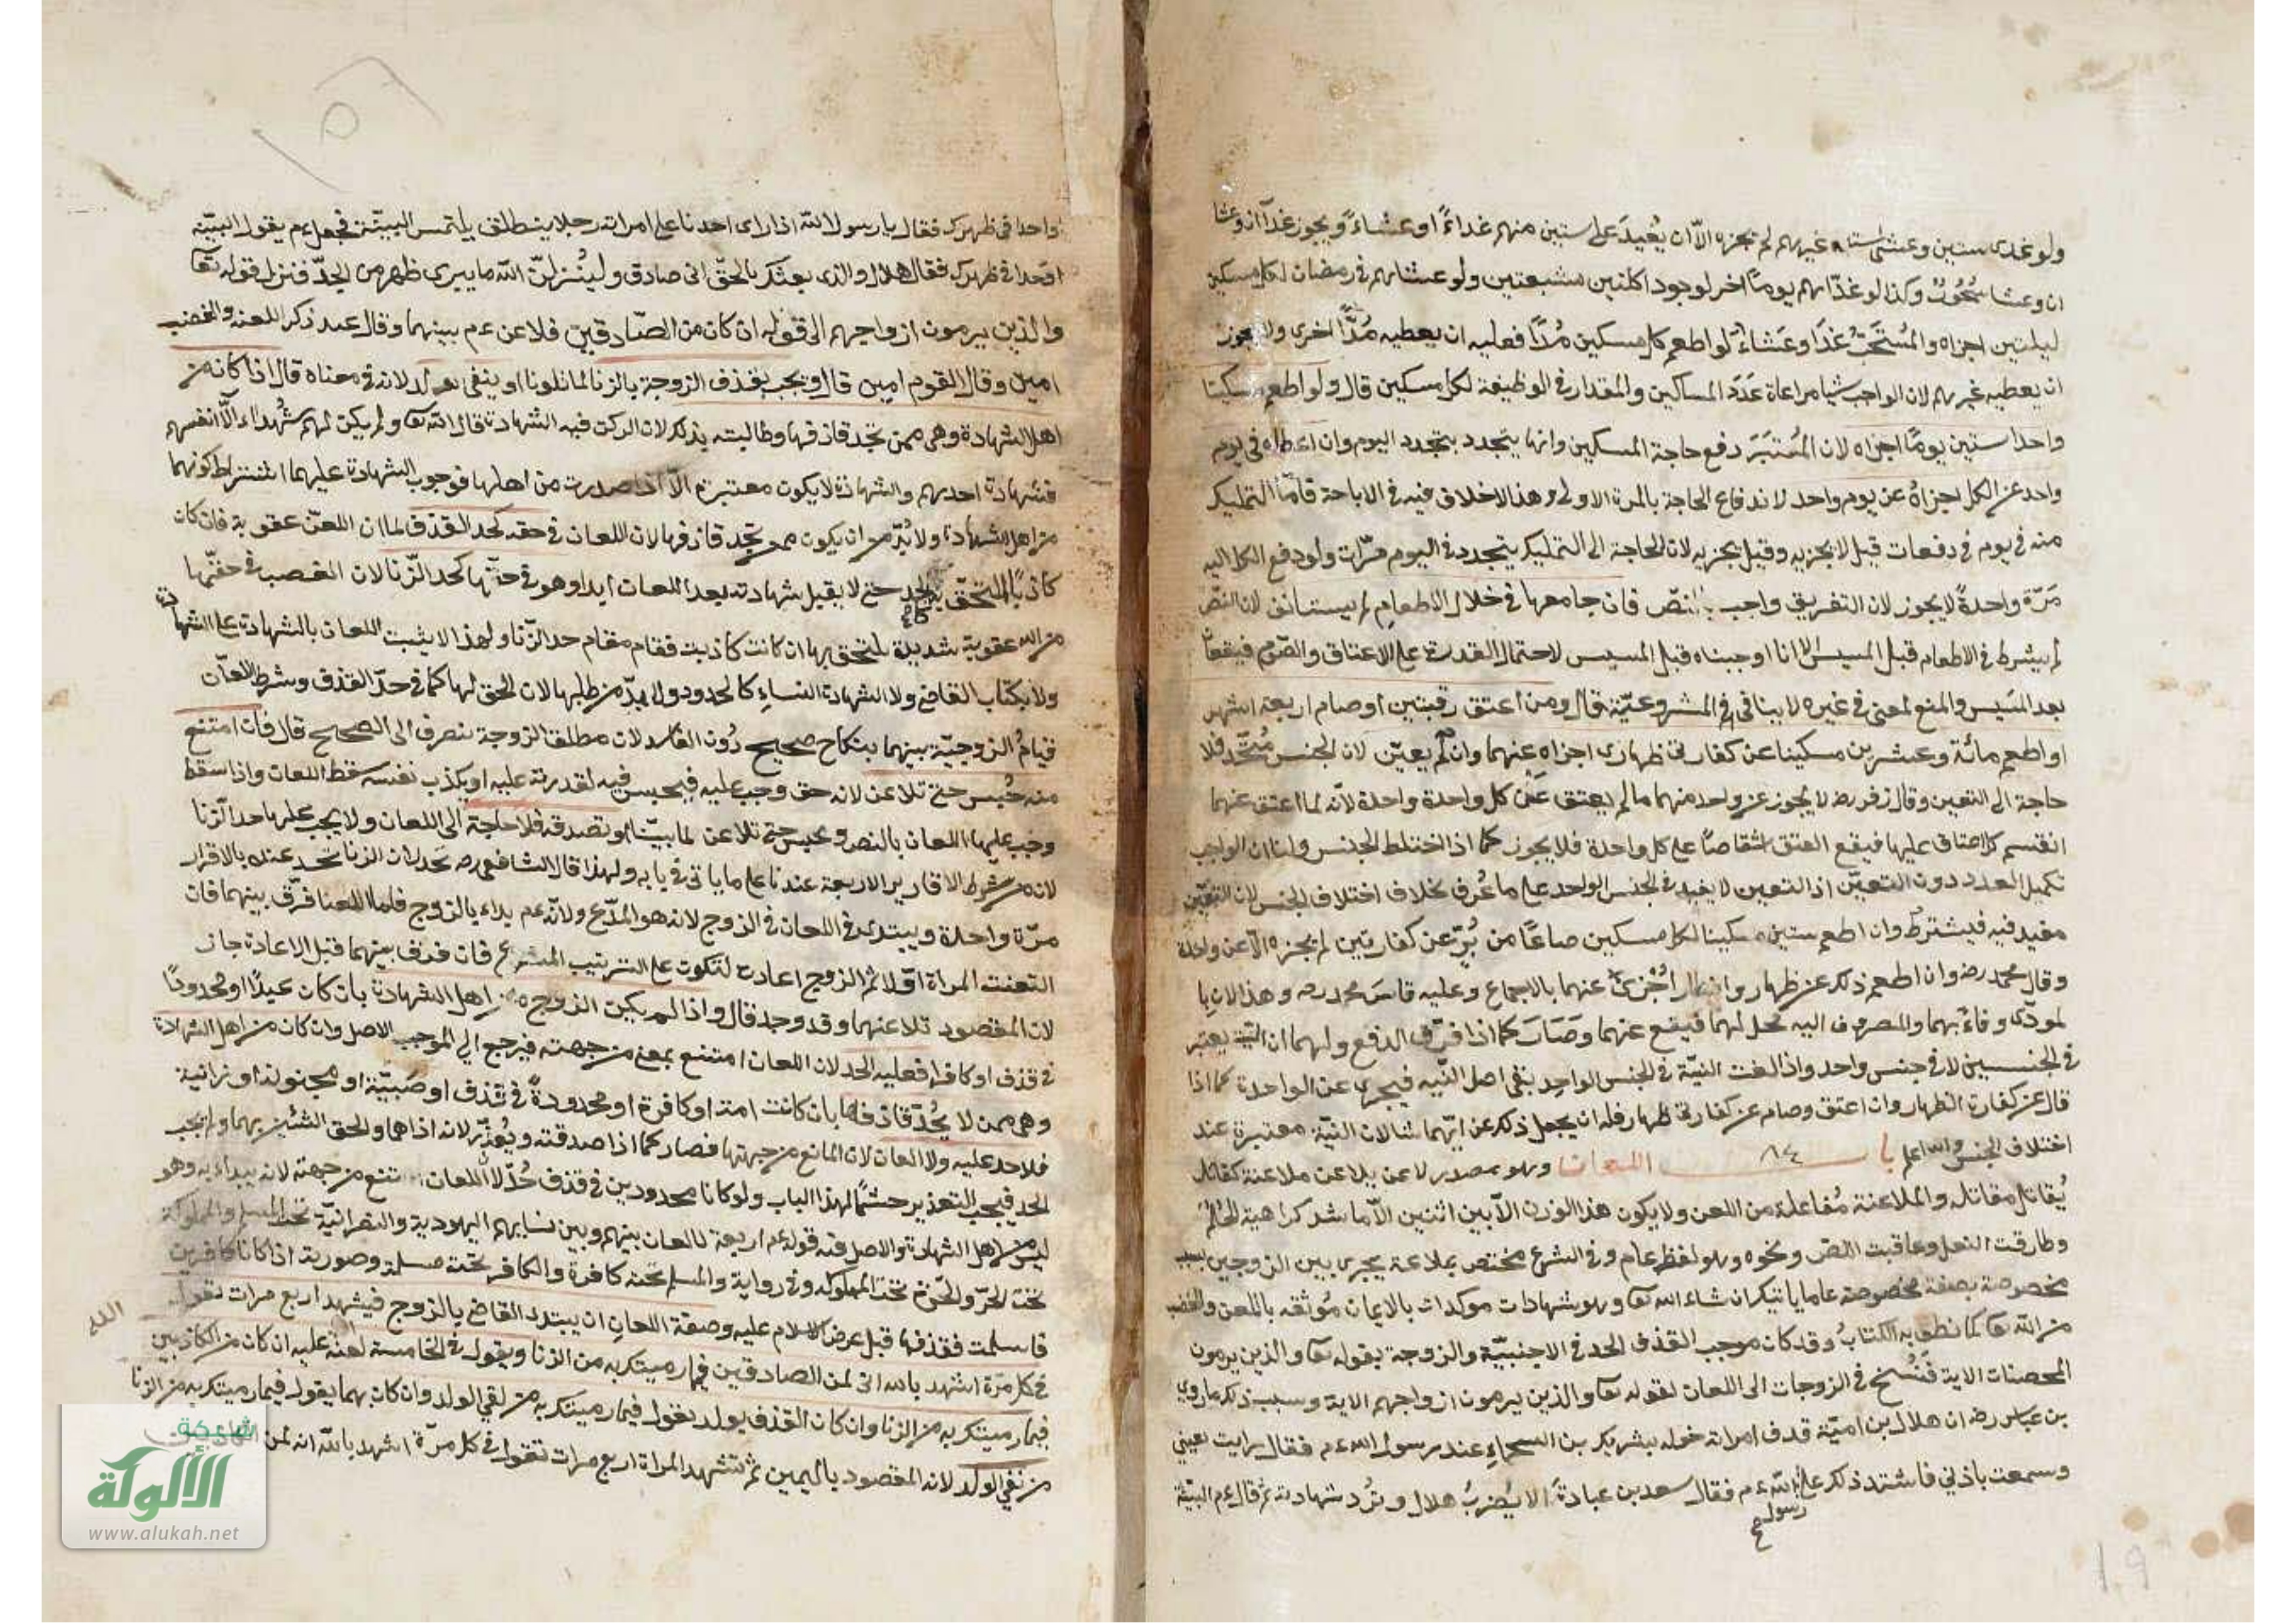 ولو غدى ستين وعشى ستين غيرهم لم يجزه الا ان يعيد على ستين منهم غداءً او عشاءً ويجوز غداآن وعشا
ان وعشا سحور وكذا لو غداهم يوما اخر لوجود اكلتين مشبعتين ولو عشاهم في رمضان لكل مسكين
ليلتين اجزاه والمستحب غدا وعشاء ولو اطعم كل مسكين مُدًّا فعليه ان يعطيه مُدًّا اخرى ولا يجوز
ان يعطيه غيرهم لان الواجب شيا مراعاة عدد المساكين والمقدار في الوظيفة لكل مسكين قال ولو اطعم مسكينا
واحدا ستين يومًا اجزاه لان المعتبر دفع حاجة المسكين وانها يتجدد بتجدد اليوم وان اعطاه في يوم
واحد عن الكل اجزاهُ عن يوم واحد لاندفاع الحاجة بالمرة الاولى وهذا لاخلاق فيه في الاباحة فامّا التمليك
منه في يوم في دفعات قيل لا يجزيه وقيل يجزيه لان الحاجة الى التمليك يتجدد في اليوم مرّات ولو دفع الكل اليه
مَرّة واحدةً لا يجوز لان التفريق واجب بالنصّ فان جامعها في خلال الاطعام لم يستانف لان النصّ
لم يشرط في الاطعام قبل المسيس الا انا اوجبناه قبل المسيس لاحتمال القدرة على الاعتاق والصّوم فيقعان
بعد المسيس والمنع لمعنى في غيره لا ينافي في المشروعيّة قال ومن اعتق رقبتين او صام اربعة اشهر
او اطعم مائة وعشرين مسكينا عن كفارتي ظهاري اجزاه عنهما وان لم يعيّن لان الجنس مُتّحد فلا
حاجة الى التعين وقال زفر رضـ لا يجوز عن واحد منهما ما لم يعتق عن كل واحدة واحدة لانّه لما اعتق عنهما
انقسم كل اعتاق عليها فيقع العتق اشقاصًا على كل واحدة فلا يجوز كما اذا اختلط الجنس ولنا ان الواجب
تكميل العدد دون التعيّن اذ التعين لا يفيد في الجنس الواحد على ما عُرف بخلاف اختلاف الجنس لان التعيّن
مفيد فيه فيشترط وان اطعم ستين مسكينا لكل مسكين صاعًا من بُرّ عن كفارتين لم يجزه الا عن واحدة
وقال محمد رضـ وان اطعم ذلك عن ظهار وافطار اجزى عنهما بالاجماع وعليه قاسَ محمد رضـ وهذا لان با
لمودّى وفاءً بهما والمصروف اليه محل لهما فيقع عنهما وصَارَ كما اذا فرّق الدفع ولهما ان النيّة يعتبر
في الجنسين لا في جنس واحد واذا لغت النيّة في الجنس الواحد بقي اصل النيه فيجزى عن الواحدة كما اذا
قال عن كفارة الظهار وان اعتق وصام عن كفارتي ظهار فله ان يجعل ذلك عن ايّهما شالان النيّة معتبرة عند
اختلاف الجنس والله اعلم باب ٨٤ اللعان وهو مصدر لاعن يلاعن ملاعنة كقاتل
يُقاتل مقاتله والملاعنة مُفاعلة من اللعن ولا يكون هذا الوزن الآبين اثنين الا ما شذ كراهية
وطارقت النعل وعاقبت اللص ونحوه وهو لفظ عام وفي الشرع مختص بملاعنة يجرى بين الزوجين بسبب
مخصوصة بصفة مخصوصة على ما ياتيك ان شاء الله تعا وهو شهادات موكدات بالايمان مُوثقه باللعن والغضب
من الله تعا كما نطق به الكتابُ وقد كان موجب القذف الحد في الاجنبيّة والزوجة بقوله تعا والذين يرمون
المحصنات الاية فَنُسخ في الزوجات الى اللعان لقوله تعا والذين يرمون ازواجهم الاية وسبب ذلك ما روي
بن عباس رضـ ان هلال بن اميّة قذف امراته خوله بشريك بن السحماءِ عند رسول الله ع م فقال رايت بعيني
وسمعت باذني فاشتد ذلك على رسول الله ع م فقال سعد بن عبادةَ الا يُضربُ هلال وتُرد شهادته ثم قال ع م البيّنة
١٠٩
واحدا في ظهرك فقال يا رسول الله اذا راى احدنا على امراته رجلا ينطلق يلتمس البيّنة فجعل ع م يقول البيّنه
او حدا في ظهرك فقال هلال والذي بعثك بالحقّ اني صادق وليُنزلنّ الله ما يبرى ظهر من الحدّ فنزل قوله تعا
والذين يرمون ازواجهم الى قوله ان كان من الصّادقين فلاعن ع م بينهما وقال عند ذكر اللعنه والغضب
امين وقال القوم امين قال ويجب بقذف الزوجة بالزنا لما تلونا او ينفى الولد لانه في معناه قال اذا كانا من
اهل الشهادة وهى ممن يُحد قاذفها وطالبته بذلك لان الركن فيه الشهادة قال الله تعا ولم يكن لهم شُهداء الّا انفسهم
فشهادة احدهم والشهادة لا يكون معتبرة الا اذا صدرت من اهلها فوجوب الشهادة عليهما اشتراط كونهما
من اهل الشهادة ولا بُدّ من ان يكون ممن يحد قاذفها لان اللعان في حقه كحد القذف لما ان اللعن عقوبة فان كان
كاذبًا التحق به كالحد حتى لا يقبل شهادته بعد اللعان ابدا وهو في حقّها كحد الزّنا لان الغضب في حقّها
من الله عقوبة شديدة يلتحق بها ان كانت كاذبت فقام مقام حد الزّنا ولهذا لا يثبت اللعان بالشهادة على الشهادة
ولا بكتاب القاضي ولا الشهادة النساءِ كالحدود ولا بدّ من طلبها لان الحق لها كما في حدّ القذف وشرط اللعان
قيامُ الزوجيّة بينهما بنكاح صحيح دُون الفاسد لان مطلق الزوجة تنصرف الى الصحيح قال فان امتنع
منه حُبس حتى تلاعن لانه حق وجب عليه فيحبس فيه لقدرته عليه او يكذب نفسه سقط اللعان واذا سقط
وجب عليها اللعان بالنص وتحبس حتى تلاعن لما بيّنا او تصدقه فلا حاجة الى اللعان ولا يجب عليها حد الزنا
لانه من شرط الاقارير الاربعة عندنا على ما ياتي في بابه ولهذا قال الشافعي رضـ تحد لان الزنا تحد عنده بالاقرار
مرّة واحدة ويبتدى في اللعان في الزوج لانه هو المدّع ولانّه ع م بداء بالزوج فلما اللعنا فرّق بينهما فان
التعنت المراة اوّلا ثم الزوج اعادت لتكون على الترتيب المشروع فان فرق بينهما قبل الاعادة جاز
لان المقصود تلاعنهما وقد وجد قال واذا لم يكن الزوج من اهل الشهادة بان كان عبدًا او محدودًا
في قذف او كافرا فعليه الحد لان اللعان امتنع بمعنى من جهته فيرجع الى الموجب الاصل وان كان من اهل الشهادة
وهى ممن لا يُحدّ قاذفها بان كانت امة او كافرة او محدودةً في قذف او صَبيّة او مجنونة او زانية
فلا حد عليه ولا لعان لان المانع من جهتها فصار كما اذا صدقته ويُعذّر لانه اذاهما والحق الشين بهما ولم يجب
الحد فيجب التعذير حشمًا لهذا الباب ولو كانا محدودين في قذف حُدّ لان اللعان امتنع من جهته لانه بيداء به وهو
ليس من اهل الشهادة والاصل فيه قوله ع م اربعة لا لعان بينهم وبين نسايهم اليهودية والنصرانيّة تحت المسلم والمملوكة
تحت الحرّ والحرّة تحت المملوك وفي رواية والمسلم تحته كافرة والكافر تحته مسلمة وصورته اذا كانا كافرين
فاسلمت فقذفها قبل عرض الاسلام عليه وصفة اللعان ان يبتدء القاضي بالزوج فيشهد اربع مرات تقول
في كل مرّة اشهد بالله اني لمن الصادقين فيما رميتك به من الزنا ويقول في الخامسة لعنة الله عليه ان كان من الكاذبين
فيما رميتك به من الزنا وان كان القذف بولد يقول فيما رميتك به من نفي الولد وان كان بهما يقول فيما رميتك به من الزنا
من نفي الولد لانه المقصود باليمين ثم تشهد المراة اربع مرات تقول في كل مرّة اشهد بالله انه لمن الكاذبين
شبكة
الألوكة
www.alukah.net